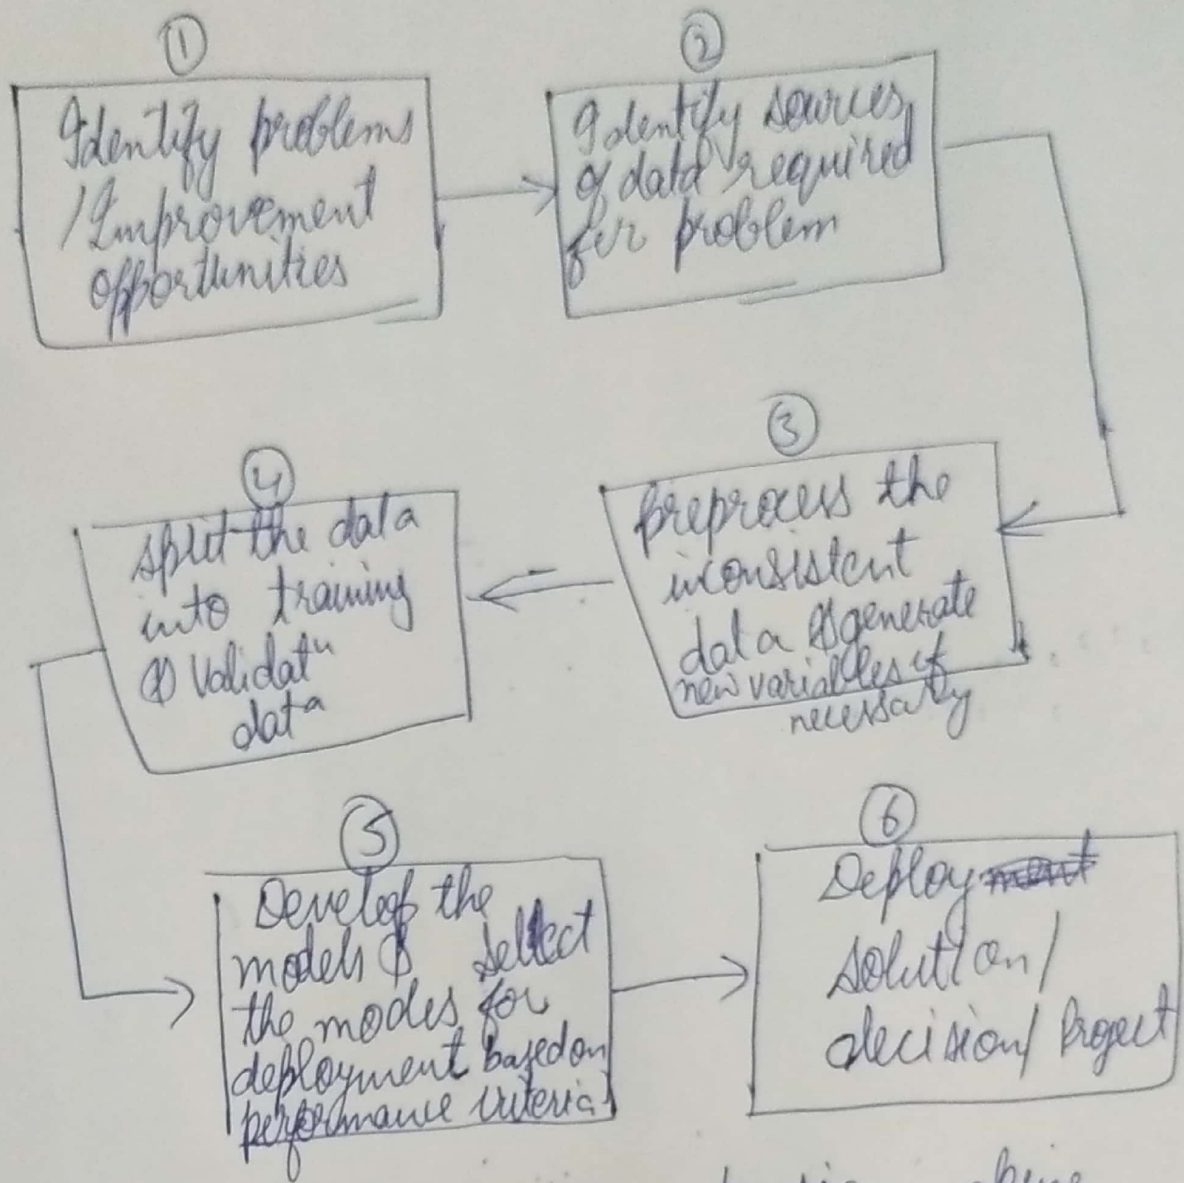 ①
Identify problems
/Improvement
opportunities
②
Identify sources
of data required
for problem
③
preprocess the
inconsistent
data & generate
new variables if
necessary
④
split the data
into training
& Validatⁿ
data
⑤
Develop the
models & select
the modes for
deployment based on
performance criteria
⑥
Deploy
solution/
decision/ Project